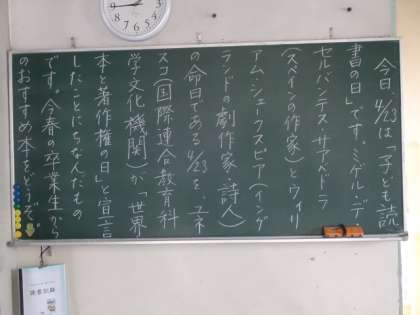 今日4/23は「子ども読
書の日」です。ミゲル・デ・
セルバンテス・サアベドラ
(スペインの作家)とウィリ
アム・シェークスピア(イング
ランドの劇作家・詩人)
の命日である4/23を、ユネ
スコ(国際連合教育科
学文化機関)が「世界・
本と著作権の日」と宣言
したことにちなんだもの
です。今春の卒業生から
のおすすめ本をどうぞ。